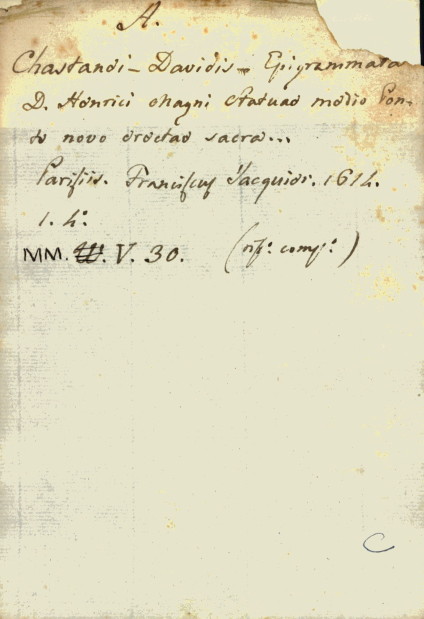 A.
Chastanei - Davidis - Epigrammata
D. Henrici Magni Statuae medio Pon-
te novo erectae sacra...
Parisiis. Franciscus Jacquin. 1614.
1. 4.º
MM. V. 30. (
C